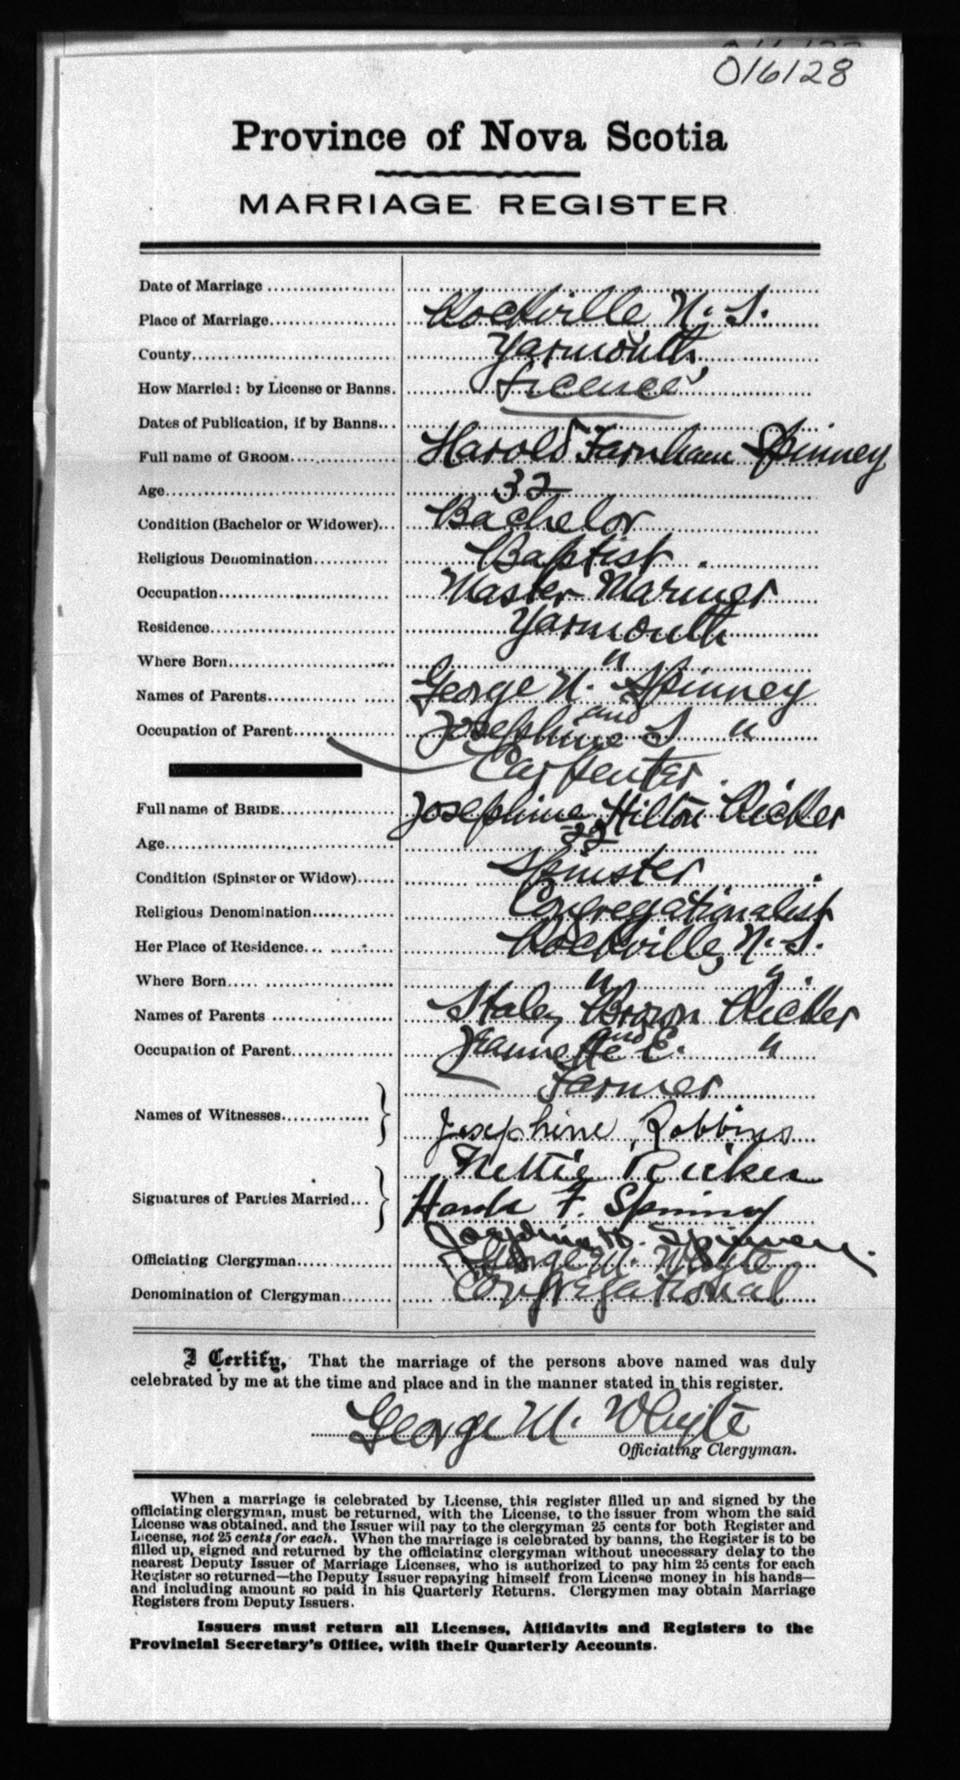 016128
Province of Nova Scotia
MARRIAGE REGISTER
Date of Marriage
Place of Marriage Rockville N. S.
County Yarmouth
How Married: by License or Banns. Licence
Dates of Publication, if by Banns
Full name of GROOM Harold Farnham Spinney
Age 32
Condition (Bachelor or Widower) Bachelor
Religious Denomination Baptist.
Occupation Master Mariner
Residence Yarmouth
Where Born "
Names of Parents George N. Spinney
and
Occupation of Parent Josephine S "
Carpenter
Full name of BRIDE Josephine Hilton Ricker
Age 22
Condition (Spinster or Widow) Spinster
Religious Denomination Congregationalist
Her Place of Residence Rockville, N. S.
Where Born " "
Names of Parents Staley Brown Ricker
and
Occupation of Parent Jeannette E. "
Farmer
Names of Witnesses Josephine Robbins
Nettie Ricker
Signatures of Parties Married F. Spinney
Josephine H. Spinney.
Officiating Clergyman George M. Whyte
Denomination of Clergyman Congregational
I Certify, That the marriage of the persons above named was duly
celebrated by me at the time and place and in the manner stated in this register.
George M. Whyte
Officiating Clergyman.
When a marriage is celebrated by License, this register filled up and signed by the
officiating clergyman, must be returned, with the License, to the issuer from whom the said
License was obtained, and the Issuer will pay to the clergyman 25 cents for both Register and
License, not 25 cents for each. When the marriage is celebrated by banns, the Register is to be
filled up, signed and returned by the officiating clergyman without unnecessary delay to the
nearest Deputy Issuer of Marriage Licenses, who is authorized to pay him 25 cents for each
Register so returned—the Deputy Issuer repaying himself from License money in his hands—
and including amount so paid in his Quarterly Returns. Clergymen may obtain Marriage
Registers from Deputy Issuers.
Issuers must return all Licenses, Affidavits and Registers to the
Provincial Secretary's Office, with their Quarterly Accounts.